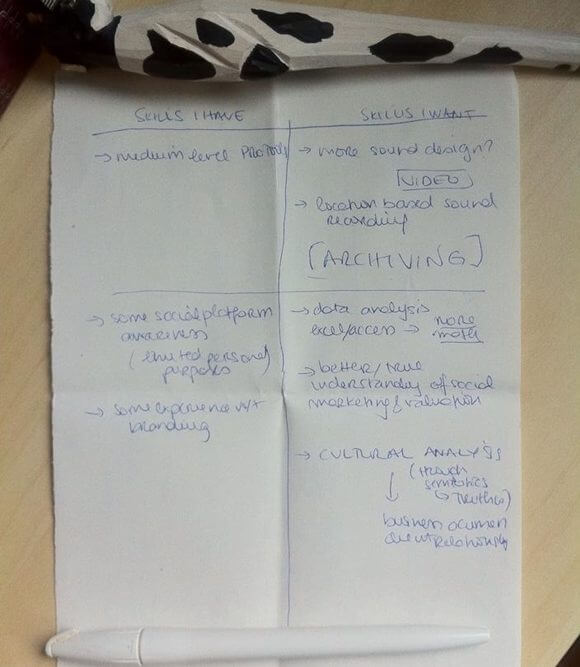 SKILLS I HAVE
→ medium level PROTOOLS
→ some social platform
awareness
(limited personal
purposes)
→ some experience w/
branding
SKILLS I WANT
→ more sound design?
VIDEO
→ location based sound
recording
[ARCHIVING]
→ data analysis
excel/access → more
math
→ better/true
understanding of social
marketing & valuation
→ CULTURAL ANALYSIS
(through
semiotics
↳ )
↓
business acumen
client relationships